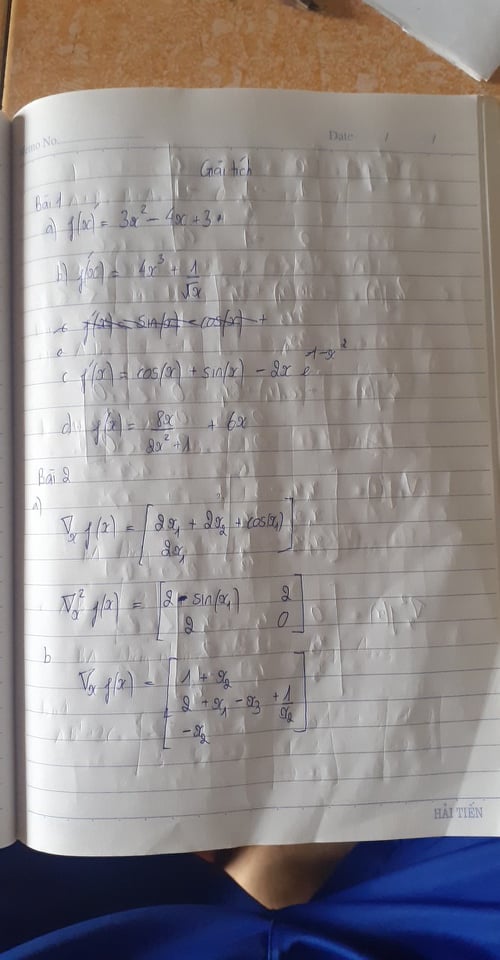 Memo No.
Date / /
Giải tích
Bài 1
a) f'(x) = 3x² - 4x + 3
b) f'(x) = 4x³ + 1/√x
f'(x) = sin(x) - cos(x) +
c f'(x) = cos(x) + sin(x) - 2x e^(1-x²)
d f'(x) = 8x/(2x²+1) + 6x
Bài 2
a)
∇ₓ f(x) = [2x₁ + 2x₂ + cos(x₁)
2x₁]
∇ₓ² f(x) = [2 - sin(x₁) 2
2 0]
b
∇ₓ f(x) = [1 + x₂
2 + x₁ - x₃ + 1/x₂
-x₂]
HẢI TIẾN